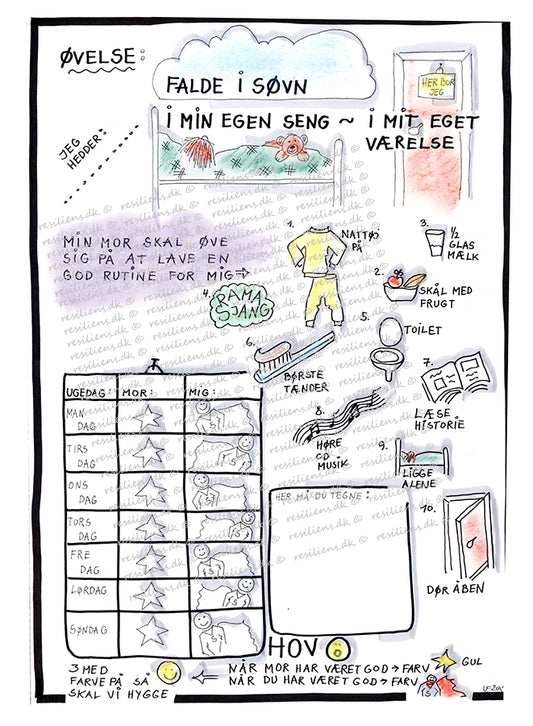 ØVELSE:
FALDE I SØVN
I MIN EGEN SENG ~ I MIT EGET
VÆRELSE
HER BOR
JEG
JEG
HEDDER:
MIN MOR SKAL ØVE
SIG PÅ AT LAVE EN
GOD RUTINE FOR MIG
1.
NATTØJ
PÅ
2.
SKÅL MED
FRUGT
3.
1/2
GLAS
MÆLK
4.
RAMA
SJANG
5.
TOILET
6.
BØRSTE
TÆNDER
7.
LÆSE
HISTORIE
8.
HØRE
CD
MUSIK
9.
LIGGE
ALENE
10.
DØR ÅBEN
UGEDAG: MOR: MIG:
MAN
DAG
TIRS
DAG
ONS
DAG
TORS
DAG
FRE
DAG
LØRDAG
SØNDAG
HER MÅ DU TEGNE:
HOV
3 MED
FARVE PÅ SÅ
SKAL VI HYGGE
NÅR MOR HAR VÆRET GOD → FARV GUL
NÅR DU HAR VÆRET GOD → FARV
resiliens.dk ©